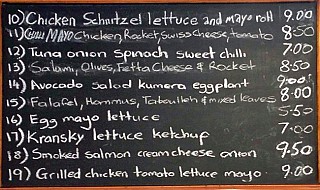 10) Chicken Schnitzel lettuce and mayo roll 9.00
11) Chilli MAYO Chicken, Rocket, Swiss cheese, tomato 8.50
12) Tuna onion Spinach sweet chilli 7.00
13) Salami, Olives, Fetta Cheese & Rocket 8.50
14) Avocado salad kumera eggplant 9.00
15) Falafel, Hommus, Tabouleh & mixed leaves 8.00
16) Egg mayo lettuce 5.50
17) Kransky lettuce ketchup 7.00
18) Smoked salmon cream cheese onion 9.50
19) Grilled chicken tomato lettuce mayo. 9.00